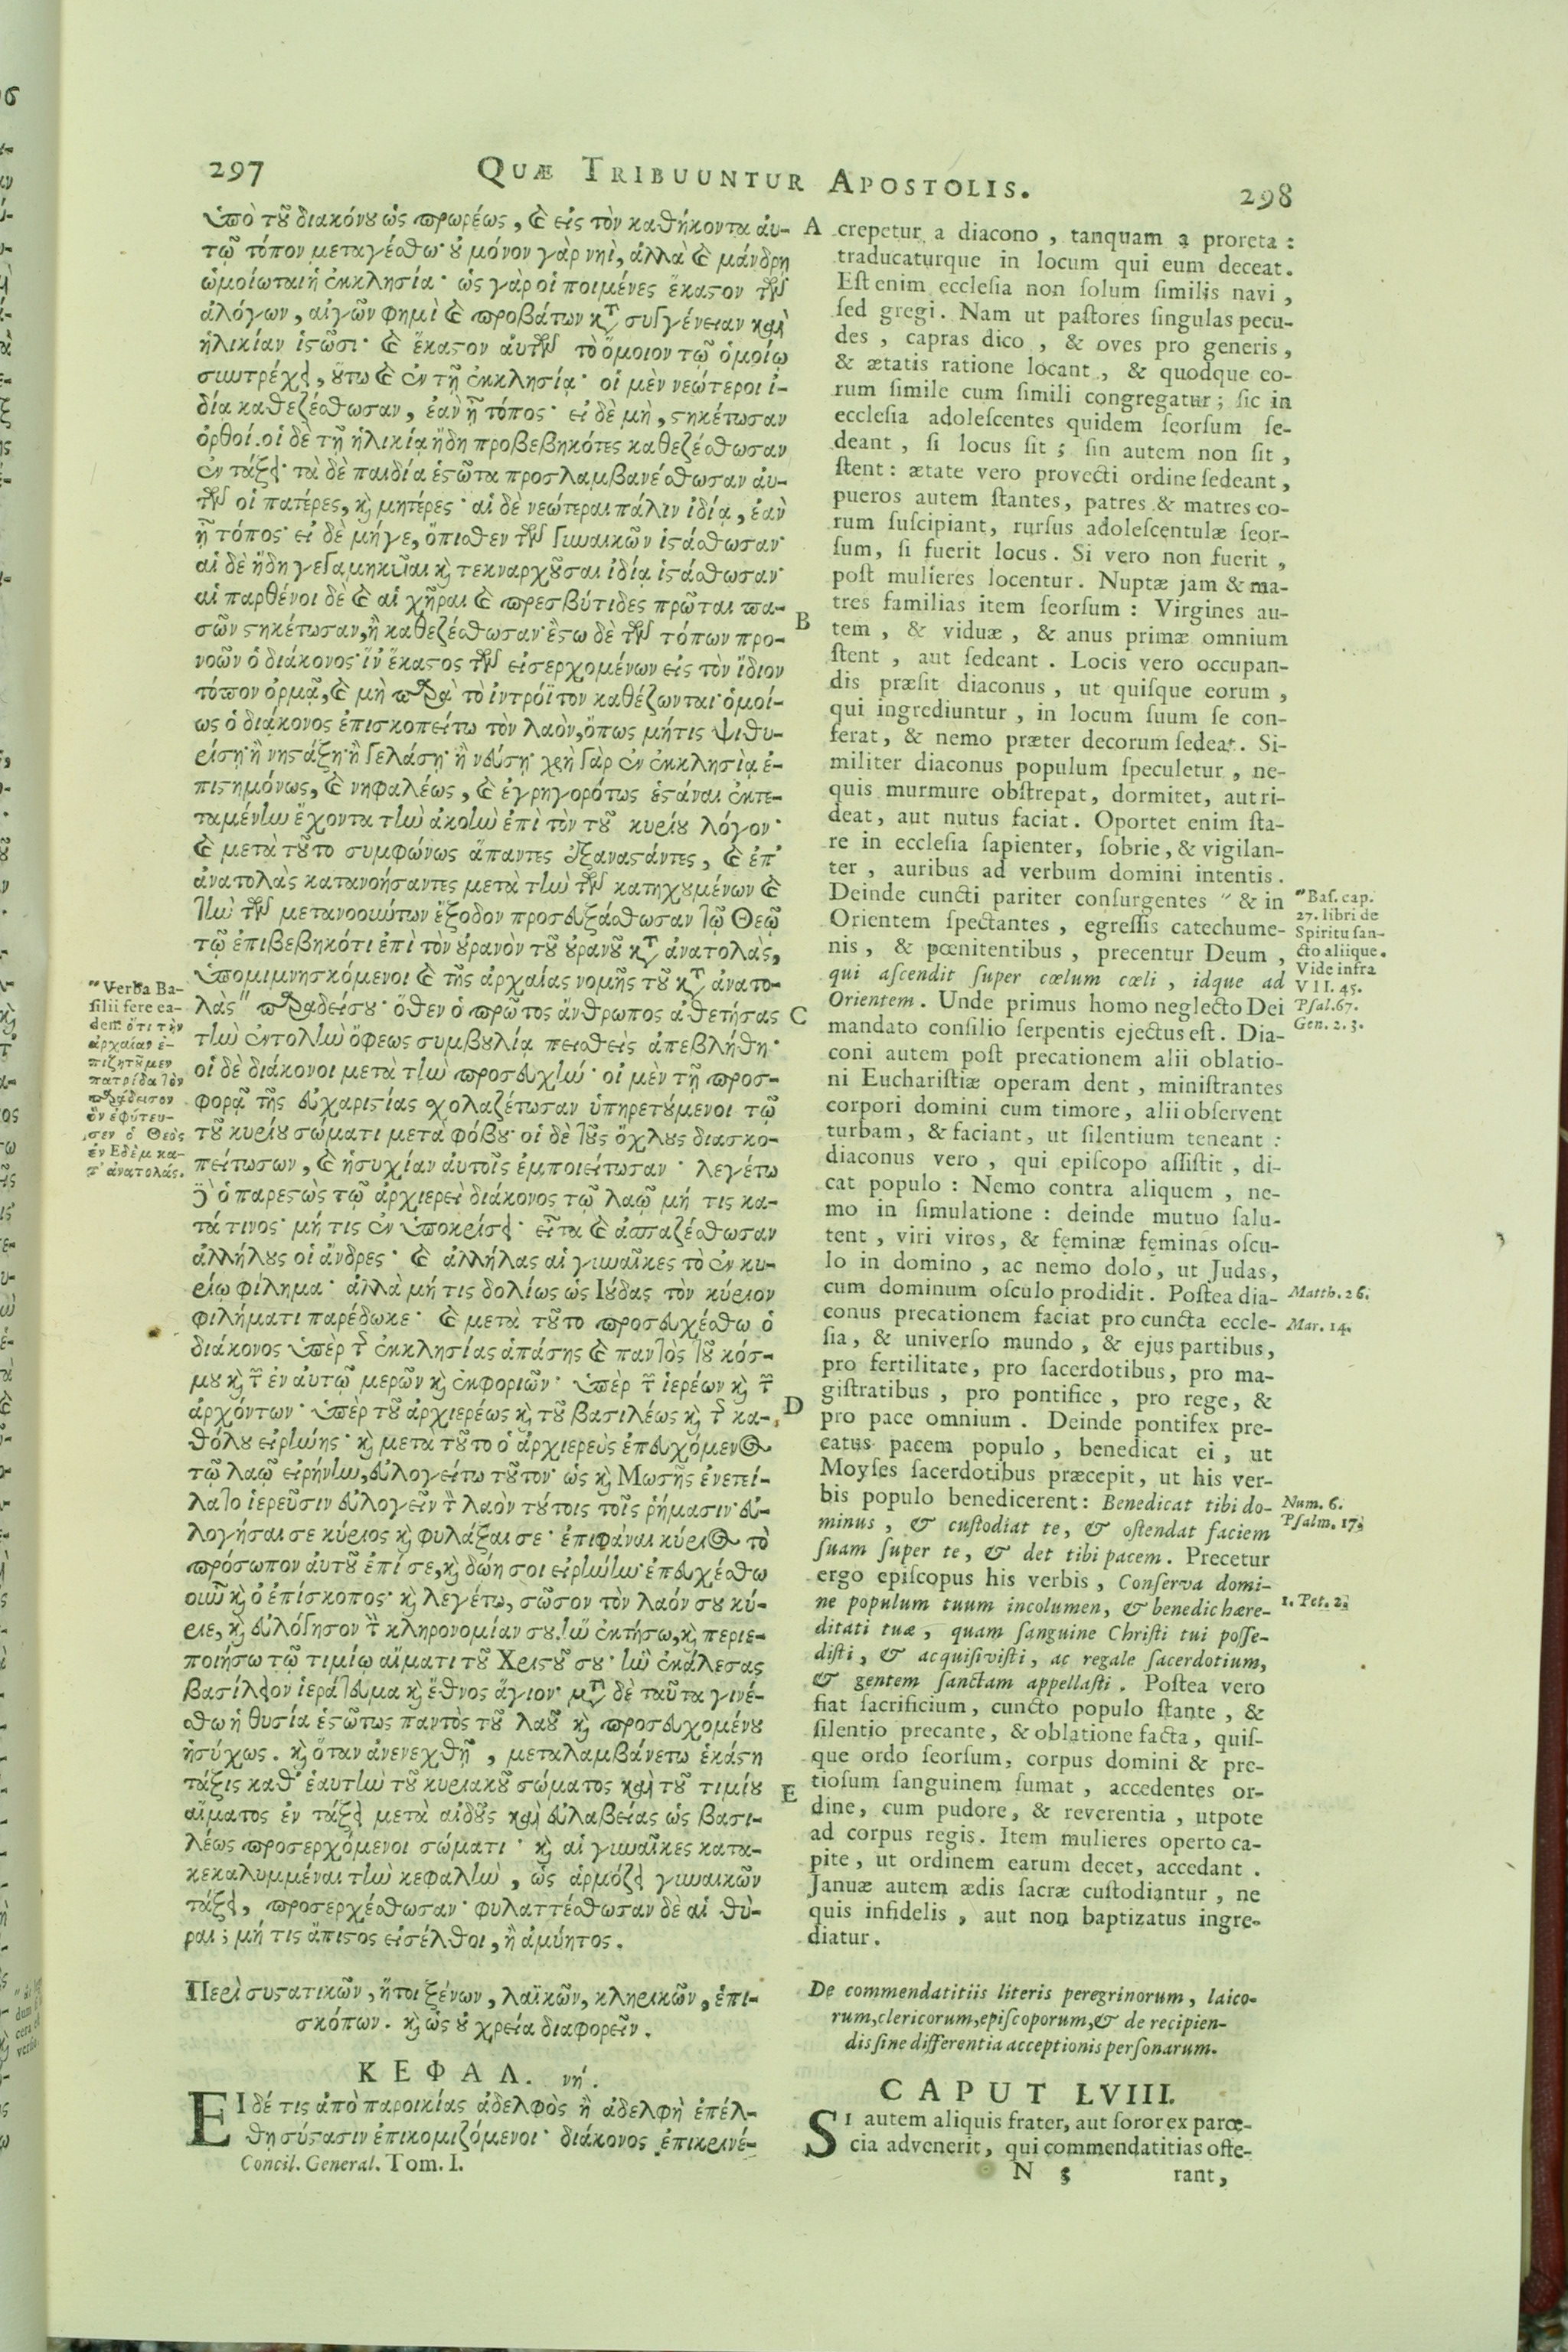 297
QUÆ TRIBUUNTUR APOSTOLIS.
298
ὑπὸ τοῦ διακόνου ὡς πρωρέως, καὶ εἰς τὸν καθήκοντα αὐ-
τῷ τόπον μεταγέσθω· οὐ μόνον γὰρ νηὶ, ἀλλὰ καὶ μάνδρῃ
ὡμοίωται ἡ ἐκκλησία· ὡς γὰρ οἱ ποιμένες ἕκαστον τῶν
ἀλόγων, αἰγῶν φημὶ καὶ προβάτων κατὰ συγγένειαν καὶ
ἡλικίαν ἱστῶσι· καὶ ἕκαστον αὐτῶν τὸ ὅμοιον τῷ ὁμοίῳ
συντρέχει, οὕτω καὶ ἐν τῇ ἐκκλησίᾳ· οἱ μὲν νεώτεροι ἰ-
δίᾳ καθεζέσθωσαν, ἐὰν ᾖ τόπος· εἰ δὲ μὴ, στηκέτωσαν
ὀρθοί. οἱ δὲ τῇ ἡλικίᾳ ἤδη προβεβηκότες καθεζέσθωσαν
ἐν τάξει· τὰ δὲ παιδία ἑστῶτα προσλαμβανέσθωσαν αὐ-
τῶν οἱ πατέρες, καὶ μητέρες· αἱ δὲ νεώτεραι πάλιν ἰδίᾳ, ἐὰν
ᾖ τόπος· εἰ δὲ μήγε, ὄπισθεν τῶν γυναικῶν ἱστάσθωσαν·
αἱ δὲ ἤδη γεγαμηκυῖαι καὶ τεκναρχοῦσαι ἰδίᾳ ἱστάσθωσαν·
αἱ παρθένοι δὲ καὶ αἱ χῆραι καὶ πρεσβύτιδες πρῶται πα-
σῶν στηκέτωσαν, ἢ καθεζέσθωσαν· ἔστω δὲ τῶν τόπων προ-
νοῶν ὁ διάκονος· ἵν' ἕκαστος τῶν εἰσερχομένων εἰς τὸν ἴδιον
τόπον ὁρμᾷ, καὶ μὴ παρὰ τὸ ἰντρόϊτον καθέζωνται· ὁμοί-
ως ὁ διάκονος ἐπισκοπείτω τὸν λαὸν, ὅπως μήτις ψιθυ-
ρίσῃ ἢ νυστάξῃ ἢ γελάσῃ ἢ νεύσῃ· χρὴ γὰρ ἐν ἐκκλησίᾳ ἐ-
πιστημόνως, καὶ νηφαλέως, καὶ ἐγρηγορότως ἑστάναι ἐκτε-
ταμένην ἔχοντα τὴν ἀκοὴν ἐπὶ τὸν τοῦ κυρίου λόγον·
καὶ μετὰ τοῦτο συμφώνως ἅπαντες ἐξαναστάντες, καὶ ἐπ'
ἀνατολὰς κατανοήσαντες μετὰ τὴν τῶν κατηχουμένων καὶ
τὴν τῶν μετανοούντων ἔξοδον προσευξάσθωσαν τῷ Θεῷ
τῷ ἐπιβεβηκότι ἐπὶ τὸν οὐρανὸν τοῦ οὐρανοῦ κατὰ ἀνατολὰς,
ὑπομιμνησκόμενοι καὶ τῆς ἀρχαίας νομῆς τοῦ κατὰ ἀνατο-
λὰς " παραδείσου· ὅθεν ὁ πρῶτος ἄνθρωπος ἀθετήσας
τὴν ἐντολὴν ὄφεως συμβουλίᾳ πεισθεὶς ἀπεβλήθη·
οἱ δὲ διάκονοι μετὰ τὴν προσευχήν· οἱ μὲν τῇ προσ-
φορᾷ τῆς εὐχαριστίας σχολαζέτωσαν ὑπηρετούμενοι τῷ
τοῦ κυρίου σώματι μετὰ φόβου· οἱ δὲ τοὺς ὄχλους διασκο-
πείτωσαν, καὶ ἡσυχίαν αὐτοῖς ἐμποιείτωσαν· λεγέτω
δὲ ὁ παρεστὼς τῷ ἀρχιερεῖ διάκονος τῷ λαῷ μή τις κα-
τά τινος· μή τις ἐν ὑποκρίσει· εἶτα καὶ ἀσπαζέσθωσαν
ἀλλήλους οἱ ἄνδρες· καὶ ἀλλήλας αἱ γυναῖκες τὸ ἐν κυ-
ρίῳ φίλημα· ἀλλὰ μή τις δολίως ὡς Ἰούδας τὸν κύριον
φιλήματι παρέδωκε· καὶ μετὰ τοῦτο προσευχέσθω ὁ
διάκονος ὑπὲρ τῆς ἐκκλησίας ἁπάσης καὶ παντὸς τοῦ κόσ-
μου καὶ τῶν ἐν αὐτῷ μερῶν καὶ ἐκφοριῶν· ὑπὲρ τῶν ἱερέων καὶ τῶν
ἀρχόντων· ὑπὲρ τοῦ ἀρχιερέως καὶ τοῦ βασιλέως καὶ τῆς κα-
θόλου εἰρήνης· καὶ μετὰ τοῦτο ὁ ἀρχιερεὺς ἐπευχόμενος
τῷ λαῷ εἰρήνην, εὐλογείτω τοῦτον· ὡς καὶ Μωσῆς ἐνετεί-
λατο ἱερεῦσιν εὐλογεῖν τὸν λαὸν τούτοις τοῖς ῥήμασιν· εὐ-
λογήσαι σε κύριος καὶ φυλάξαι σε· ἐπιφάναι κύριος τὸ
πρόσωπον αὐτοῦ ἐπί σε, καὶ δῴη σοι εἰρήνην· ἐπευχέσθω
οὖν καὶ ὁ ἐπίσκοπος· καὶ λεγέτω, σῶσον τὸν λαόν σου κύ-
ριε, καὶ εὐλόγησον τὴν κληρονομίαν σου. ἣν ἐκτήσω, καὶ περιε-
ποιήσω τῷ τιμίῳ αἵματι τοῦ Χριστοῦ σου· ἣν ἐκάλεσας
βασίλειον ἱεράτευμα καὶ ἔθνος ἅγιον· μετὰ δὲ ταῦτα γινέ-
σθω ἡ θυσία ἑστῶτος παντὸς τοῦ λαοῦ καὶ προσευχομένου
ἡσύχως. καὶ ὅταν ἀνενεχθῇ, μεταλαμβανέτω ἑκάστη
τάξις καθ' ἑαυτὴν τοῦ κυριακοῦ σώματος καὶ τοῦ τιμίου
αἵματος ἐν τάξει μετὰ αἰδοῦς καὶ εὐλαβείας ὡς βασι-
λέως προσερχόμενοι σώματι· καὶ αἱ γυναῖκες κατα-
κεκαλυμμέναι τὴν κεφαλὴν, ὡς ἁρμόζει γυναικῶν
τάξει, προσερχέσθωσαν· φυλαττέσθωσαν δὲ αἱ θύ-
ραι; μή τις ἄπιστος εἰσέλθοι, ἢ ἀμύητος.
Περὶ συστατικῶν, ἤτοι ξένων, λαϊκῶν, κληρικῶν, ἐπι-
σκόπων. καὶ ὡς οὐ χρεία διαφορεῖν.
ΚΕΦΑΛ. νή.
ΕΙ δέ τις ἀπὸ παροικίας ἀδελφὸς ἢ ἀδελφὴ ἐπέλ-
θῃ σύστασιν ἐπικομιζόμενοι· διάκονος ἐπικρινέ-
Concil. General. Tom. I.
" Verba Ba-
silii fere ea-
dem ὅτι τὴν
ἀρχαίαν ἐ-
πιζητοῦμεν
πατρίδα τὸν
παράδεισον
ὃν ἐφύτευ-
σεν ὁ Θεὸς
ἐν Ἐδὲμ κα-
τ' ἀνατολάς.
A
B
C
D
E
crepetur a diacono, tanquam a proreta:
traducaturque in locum qui eum deceat.
Est enim ecclesia non solum similis navi,
sed gregi. Nam ut pastores singulas pecu-
des, capras dico, & oves pro generis,
& ætatis ratione locant, & quodque eo-
rum simile cum simili congregatur; sic in
ecclesia adolescentes quidem seorsum se-
deant, si locus sit; sin autem non sit,
stent: ætate vero provecti ordine sedeant,
pueros autem stantes, patres & matres eo-
rum suscipiant, rursus adolescentulæ seor-
sum, si fuerit locus. Si vero non fuerit,
post mulieres locentur. Nuptæ jam & ma-
tres familias item seorsum: Virgines au-
tem, & viduæ, & anus primæ omnium
stent, aut sedeant. Locis vero occupan-
dis præsit diaconus, ut quisque eorum,
qui ingrediuntur, in locum suum se con-
ferat, & nemo præter decorum sedeat. Si-
militer diaconus populum speculetur, ne-
quis murmure obstrepat, dormitet, aut ri-
deat, aut nutus faciat. Oportet enim sta-
re in ecclesia sapienter, sobrie, & vigilan-
ter, auribus ad verbum domini intentis.
Deinde cuncti pariter consurgentes " & in
Orientem spectantes, egressis catechume-
nis, & pœnitentibus, precentur Deum,
qui ascendit super cœlum cœli, idque ad
Orientem. Unde primus homo neglecto Dei
mandato consilio serpentis ejectus est. Dia-
coni autem post precationem alii oblatio-
ni Eucharistiæ operam dent, ministrantes
corpori domini cum timore, alii observent
turbam, & faciant, ut silentium teneant:
diaconus vero, qui episcopo assistit, di-
cat populo: Nemo contra aliquem, ne-
mo in simulatione: deinde mutuo salu-
tent, viri viros, & feminæ feminas oscu-
lo in domino, ac nemo dolo, ut Judas,
cum dominum osculo prodidit. Postea dia-
conus precationem faciat pro cuncta eccle-
sia, & universo mundo, & ejus partibus,
pro fertilitate, pro sacerdotibus, pro ma-
gistratibus, pro pontifice, pro rege, &
pro pace omnium. Deinde pontifex pre-
catus pacem populo, benedicat ei, ut
Moyses sacerdotibus præcepit, ut his ver-
bis populo benedicerent: Benedicat tibi do-
minus, & custodiat te, & ostendat faciem
suam super te, & det tibi pacem. Precetur
ergo episcopus his verbis, Conserva domi-
ne populum tuum incolumen, & benedic hære-
ditati tuæ, quam sanguine Christi tui posse-
disti, & acquisivisti, ac regale sacerdotium,
& gentem sanctam appellasti. Postea vero
fiat sacrificium, cuncto populo stante, &
silentio precante, & oblatione facta, quis-
que ordo seorsum, corpus domini & pre-
tiosum sanguinem sumat, accedentes or-
dine, cum pudore, & reverentia, utpote
ad corpus regis. Item mulieres operto ca-
pite, ut ordinem earum decet, accedant.
Januæ autem ædis sacræ custodiantur, ne
quis infidelis, aut non baptizatus ingre-
diatur.
De commendatitiis literis peregrinorum, laico-
rum, clericorum, episcoporum, & de recipien-
dis sine differentia acceptionis personarum.
CAPUT LVIII.
SI autem aliquis frater, aut soror ex parœ-
cia advenerit, qui commendatitias offe-
N 5
rant,
" Bas. cap.
27. libri de
Spiritu san-
cto aliique.
Vide infra
VII. 45.
Psal. 67.
Gen. 2. 3.
Matth. 26.
Mar. 14.
Num. 6.
Psalm. 17.
1. Pet. 2.